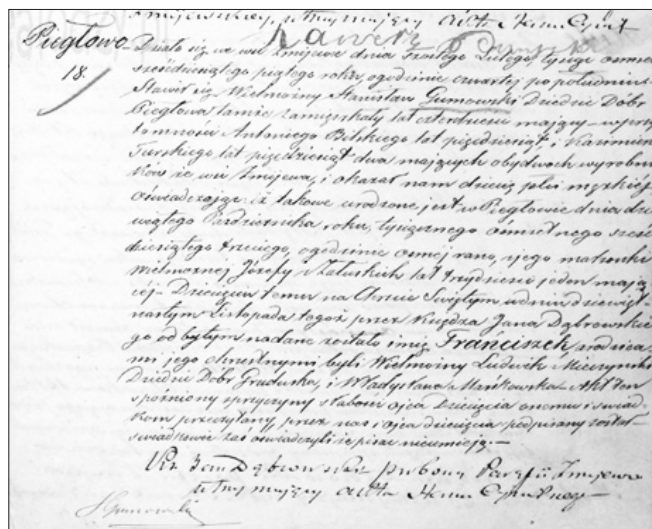 Żmijewskiej, utrzymujący Akta Stanu Cywil
Pięgłowo. Działo się we wsi Żmijewie dnia szóstego Lutego, tysiąc ośmset
18. sześćdziesiątego piątego roku, ogodzinie czwartej po południu
Stawił się Wielmożny Stanisław Gumowski Dziedzic Dóbr
Pięgłowa tamże zamieszkały lat czterdzieści mający w przy
tomności Antoniego Bilskiego lat pięćdziesiąt, i Kazimierza
Turskiego lat pięćdziesiąt dwa mających obydwóch wyrobni
ków ze wsi Żmijewa, i okazał nam dziecię płci męzkiej
oświadczając iż takowe urodzone jest w Pięgłowie dnia dzie
wiątego Października roku, tysiącznego ośmsetnego sześć
dziesiątego trzeciego, ogodzinie ósmej rano, z jego małżonki
Wielmożnej Józefy z Załuskich lat trzydzieści jeden mają
cej. Dziecięciu temu na Chrzcie Świętym, w dniu dziewięt
nastym Listopada tegoż przez Księdza Jana Dąbrowskie
go odbytym nadane zostało imię Franciszek, a rodzica
mi jego chrzestnymi byli Wielmożny Ludwik Mieczyński
Dziedzic Dóbr Gruduska, i Władysława Mańkowska. Akt ten
spóźniony z przyczyny słabości ojca Dziecięcia onemu i świad
kom przeczytany, przez nas i ojca dziecięcia podpisany został
świadkowie zaś oświadczyli iż pisać nieumieją.
Xdz Jan Dąbrowski Proboszcz Parafii Żmijewo
utrzymujący Akta Stanu Cywilnego
SGumowski